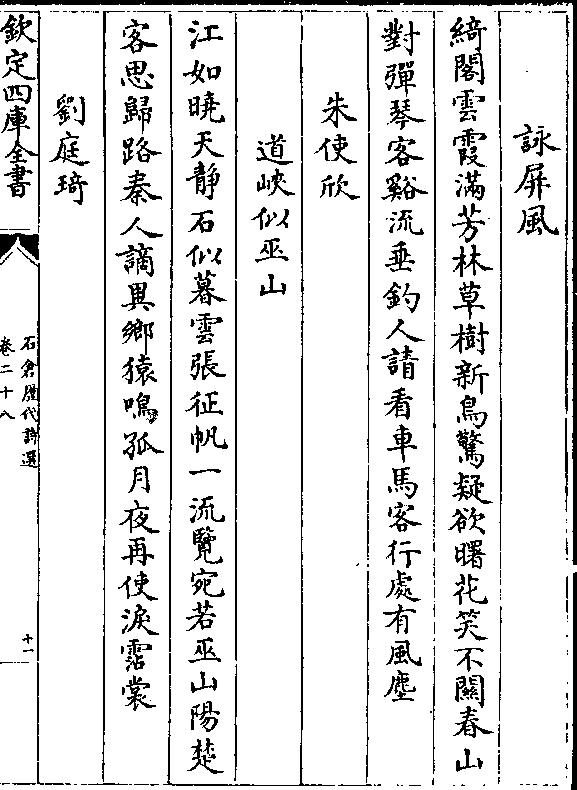 詠屏風
綺閣雲霞滿芳林草樹新鳥驚疑欲曙花笑不關春山
對彈琴客谿流垂釣人請看車馬客行處有風塵
朱使欣
道峽似巫山
江如曉天靜石似暮雲張征帆一流覽宛若巫山陽楚
客思歸路秦人謫異鄉猿鳴孤月夜再使淚霑裳
劉庭琦
欽定四庫全書
石倉歷代詩選
卷二十八
十一